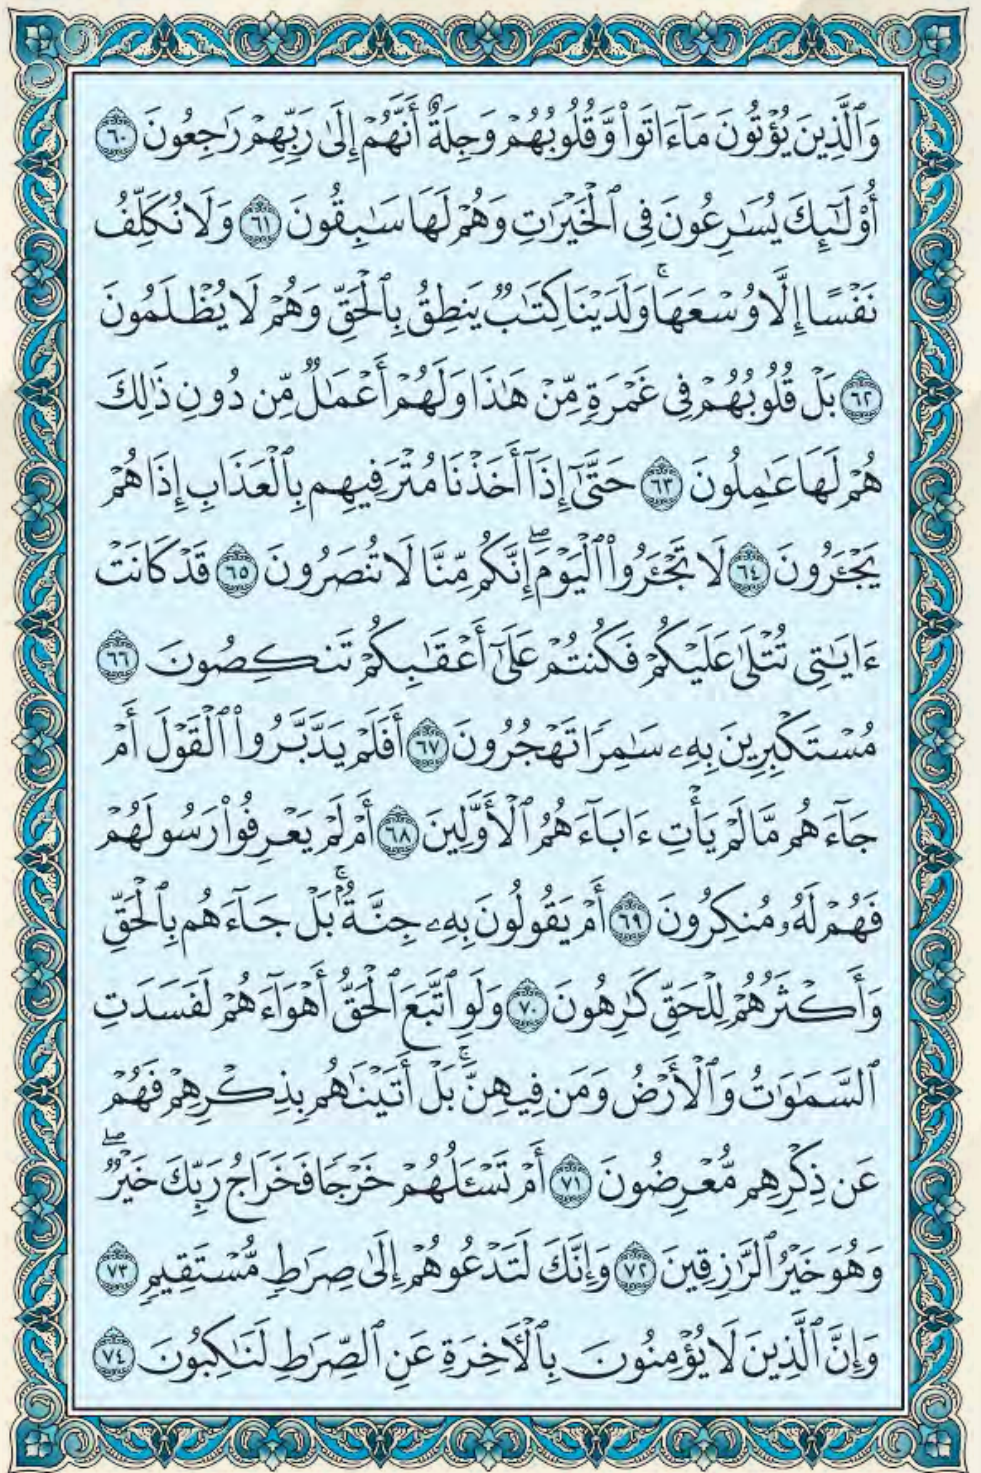 وَٱلَّذِينَ يُؤْتُونَ مَآ ءَاتَوا۟ وَّقُلُوبُهُمْ وَجِلَةٌ أَنَّهُمْ إِلَىٰ رَبِّهِمْ رَٰجِعُونَ ٦٠
أُو۟لَـٰٓئِكَ يُسَـٰرِعُونَ فِى ٱلْخَيْرَٰتِ وَهُمْ لَهَا سَـٰبِقُونَ ٦١ وَلَا نُكَلِّفُ
نَفْسًا إِلَّا وُسْعَهَا ۚ وَلَدَيْنَا كِتَـٰبٌ يَنطِقُ بِٱلْحَقِّ وَهُمْ لَا يُظْلَمُونَ
٦٢ بَلْ قُلُوبُهُمْ فِى غَمْرَةٍ مِّنْ هَـٰذَا وَلَهُمْ أَعْمَـٰلٌ مِّن دُونِ ذَٰلِكَ
هُمْ لَهَا عَـٰمِلُونَ ٦٣ حَتَّىٰٓ إِذَآ أَخَذْنَا مُتْرَفِيهِم بِٱلْعَذَابِ إِذَا هُمْ
يَجْـَٔرُونَ ٦٤ لَا تَجْـَٔرُوا۟ ٱلْيَوْمَ ۖ إِنَّكُم مِّنَّا لَا تُنصَرُونَ ٦٥ قَدْ كَانَتْ
ءَايَـٰتِى تُتْلَىٰ عَلَيْكُمْ فَكُنتُمْ عَلَىٰٓ أَعْقَـٰبِكُمْ تَنكِصُونَ ٦٦
مُسْتَكْبِرِينَ بِهِۦ سَـٰمِرًا تَهْجُرُونَ ٦٧ أَفَلَمْ يَدَّبَّرُوا۟ ٱلْقَوْلَ أَمْ
جَآءَهُم مَّا لَمْ يَأْتِ ءَابَآءَهُمُ ٱلْأَوَّلِينَ ٦٨ أَمْ لَمْ يَعْرِفُوا۟ رَسُولَهُمْ
فَهُمْ لَهُۥ مُنكِرُونَ ٦٩ أَمْ يَقُولُونَ بِهِۦ جِنَّةٌۢ ۚ بَلْ جَآءَهُم بِٱلْحَقِّ
وَأَكْثَرُهُمْ لِلْحَقِّ كَـٰرِهُونَ ٧٠ وَلَوِ ٱتَّبَعَ ٱلْحَقُّ أَهْوَآءَهُمْ لَفَسَدَتِ
ٱلسَّمَـٰوَٰتُ وَٱلْأَرْضُ وَمَن فِيهِنَّ ۚ بَلْ أَتَيْنَـٰهُم بِذِكْرِهِمْ فَهُمْ
عَن ذِكْرِهِم مُّعْرِضُونَ ٧١ أَمْ تَسْـَٔلُهُمْ خَرْجًا فَخَرَاجُ رَبِّكَ خَيْرٌ ۖ
وَهُوَ خَيْرُ ٱلرَّٰزِقِينَ ٧٢ وَإِنَّكَ لَتَدْعُوهُمْ إِلَىٰ صِرَٰطٍ مُّسْتَقِيمٍ ٧٣
وَإِنَّ ٱلَّذِينَ لَا يُؤْمِنُونَ بِٱلْـَٔاخِرَةِ عَنِ ٱلصِّرَٰطِ لَنَـٰكِبُونَ ٧٤